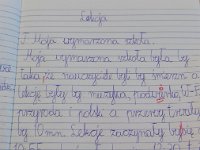 Lekcja
T: Moja wymarzona szkoła.
Moja wymarzona szkoła była by
taka, że nauczyciele byli by
lekcje były by muzyka,
przyroda i polski a przerwy trwały
by 10 min. Lekcje zaczynały by się o